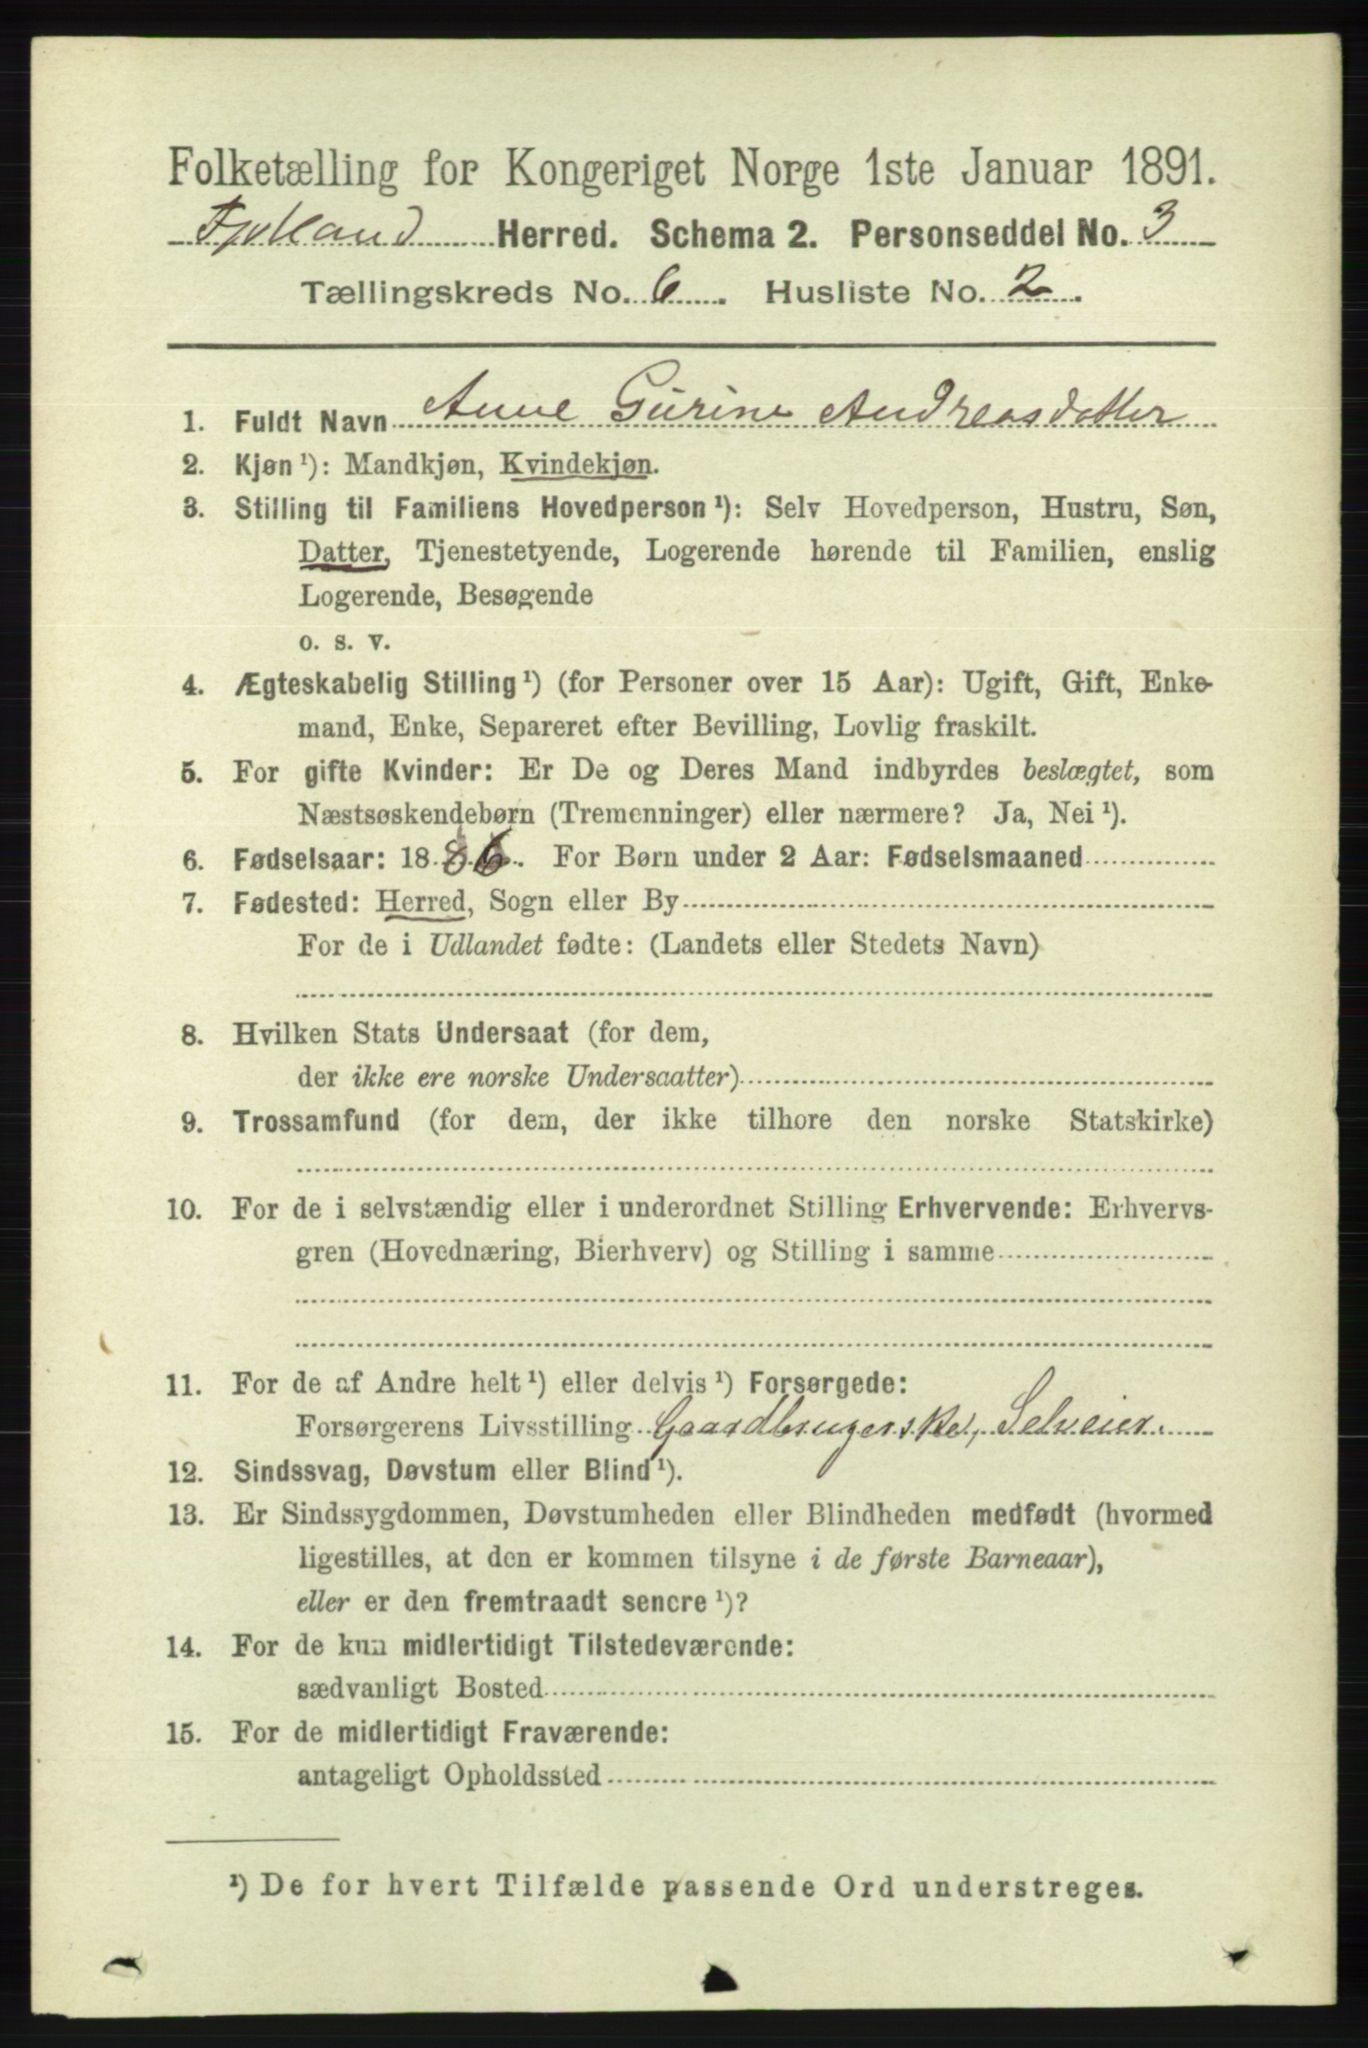 Folketælling for Kongeriget Norge 1ste Januar 1891.
Fjotland Herred. Schema 2. Personseddel No. 3
Tællingskreds No. 6. Husliste No. 2.
1. Fuldt Navn Anne Gurine Andreasdatter
2. Kjøn ¹): Mandkjøn, Kvindekjøn.
3. Stilling til Familiens Hovedperson ¹): Selv Hovedperson, Hustru, Søn,
Datter, Tjenestetyende, Logerende hørende til Familien, enslig
Logerende, Besøgende
o. s. v.
4. Ægteskabelig Stilling ¹) (for Personer over 15 Aar): Ugift, Gift, Enke-
mand, Enke, Separeret efter Bevilling, Lovlig fraskilt.
5. For gifte Kvinder: Er De og Deres Mand indbyrdes beslægtet, som
Næstsøskendebørn (Tremenninger) eller nærmere? Ja, Nei ¹).
6. Fødselsaar: 1886. For Børn under 2 Aar: Fødselsmaaned
7. Fødested: Herred, Sogn eller By
For de i Udlandet fødte: (Landets eller Stedets Navn)
8. Hvilken Stats Undersaat (for dem,
der ikke ere norske Undersaatter)
9. Trossamfund (for dem, der ikke tilhøre den norske Statskirke)
10. For de i selvstændig eller i underordnet Stilling Erhvervende: Erhvervs-
gren (Hovednæring, Bierhverv) og Stilling i samme
11. For de af Andre helt ¹) eller delvis ¹) Forsørgede:
Forsørgerens Livsstilling Gaardbrugerske, Selveier.
12. Sindssvag, Døvstum eller Blind ¹).
13. Er Sindssygdommen, Døvstumheden eller Blindheden medfødt (hvormed
ligestilles, at den er kommen tilsyne i de første Barneaar),
eller er den fremtraadt senere ¹)?
14. For de kun midlertidigt Tilstedeværende:
sædvanligt Bosted
15. For de midlertidigt Fraværende:
antageligt Opholdssted
¹) De for hvert Tilfælde passende Ord understreges.